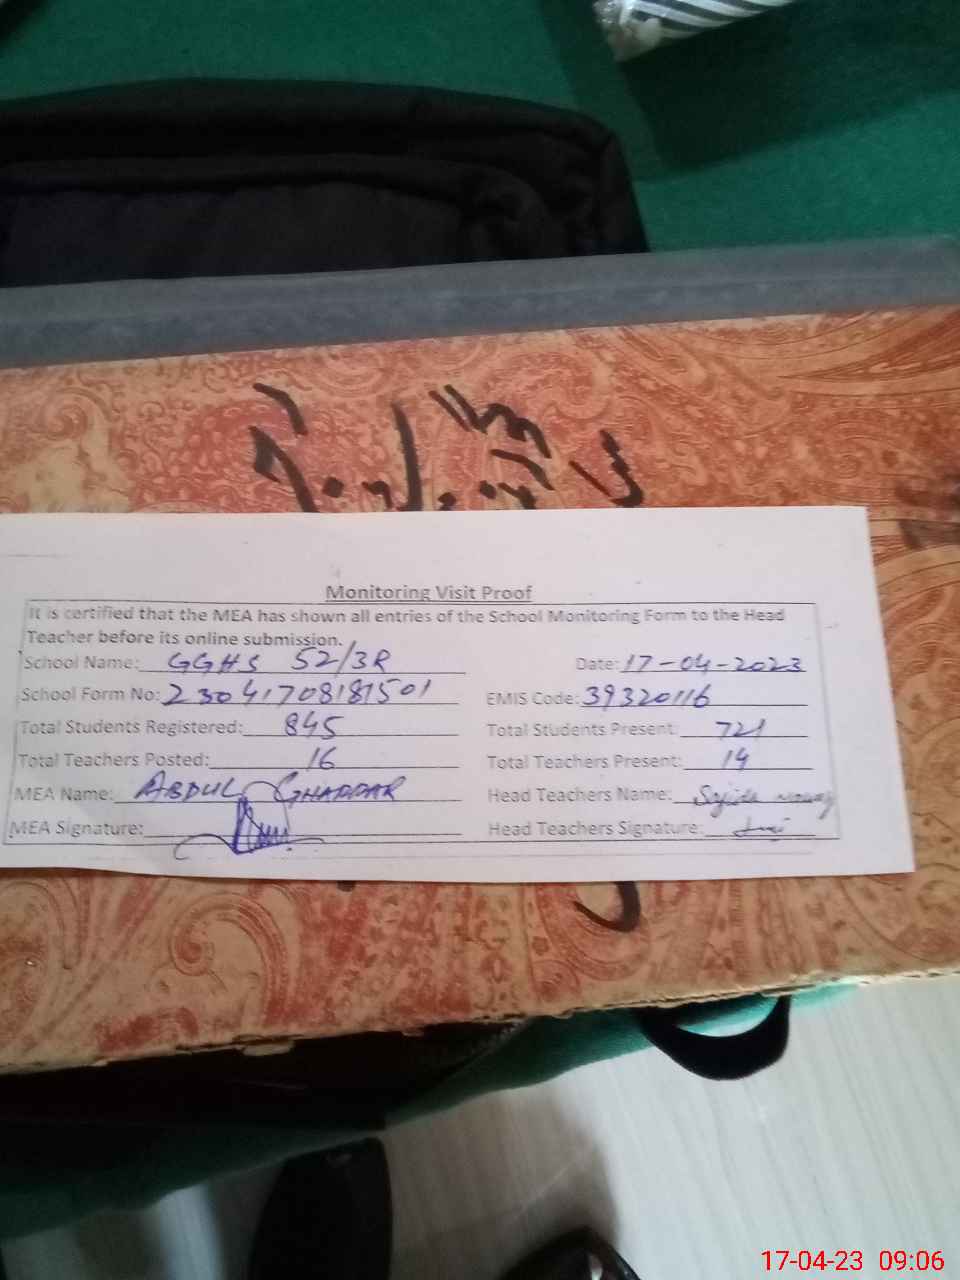 Monitoring Visit Proof
It is certified that the MEA has shown all entries of the School Monitoring Form to the Head
Teacher before its online submission.
School Name: GGHS 52/3R Date: 17-04-2023
School Form No: EMIS Code: 39320116
Total Students Registered: 845 Total Students Present: 721
Total Teachers Posted: 16 Total Teachers Present: 14
MEA Name: ABDUL GHAFFAR Head Teachers Name:
MEA Signature: Head Teachers Signature:
17-04-23 09:06